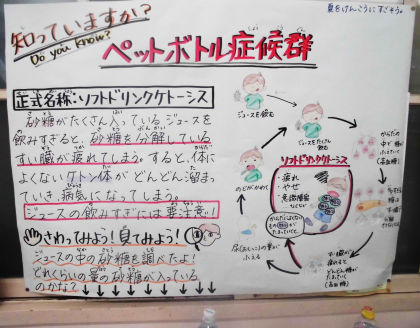 夏をけんこうにすごそう。
知っていますか?
Do you know?
ペットボトル症候群
正式名称・ソフトドリンクケトーシス
砂糖がたくさん入っているジュースを
飲みすぎると、砂糖を分解している
すい臓が疲れてしまう。すると、体に
よくないケトン体がどんどん溜まっ
ていき、病気になってしまう。
ジュースの飲みすぎには要注意!
さわってみよう!見てみよう!
ジュースの中の砂糖を調べたよ!
どれくらいの量の砂糖が入っている
のかな?
ジュースを飲む
ジュースをたくさん
飲む
からだの
中で糖が
ふえていく
(高血糖)
ソフトドリンクケトーシス
・疲れ
・やせ
・意識障害
などなど
のどがかわく
尿(おしっこ)の量が
ふえる
すい臓が
疲れると
どんどん糖が
たまっていく
(高血糖)